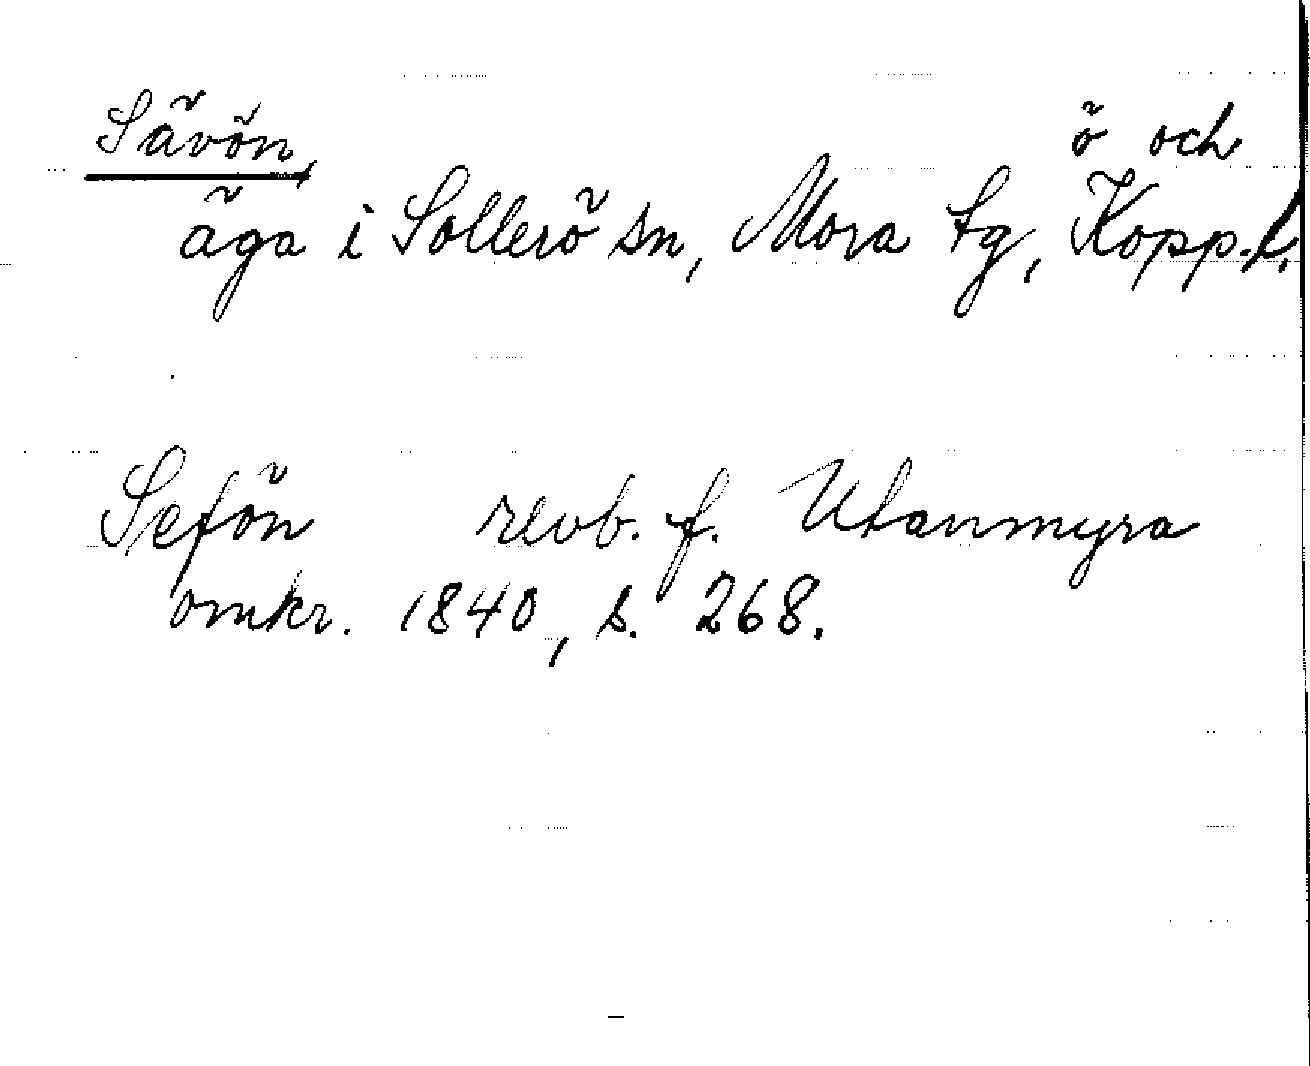 Sävön, ö och
äga i Sollerö sn, Mora tg, Kopp. l.
Sefön revb. f. Utanmyra
omkr. 1840, s. 268.